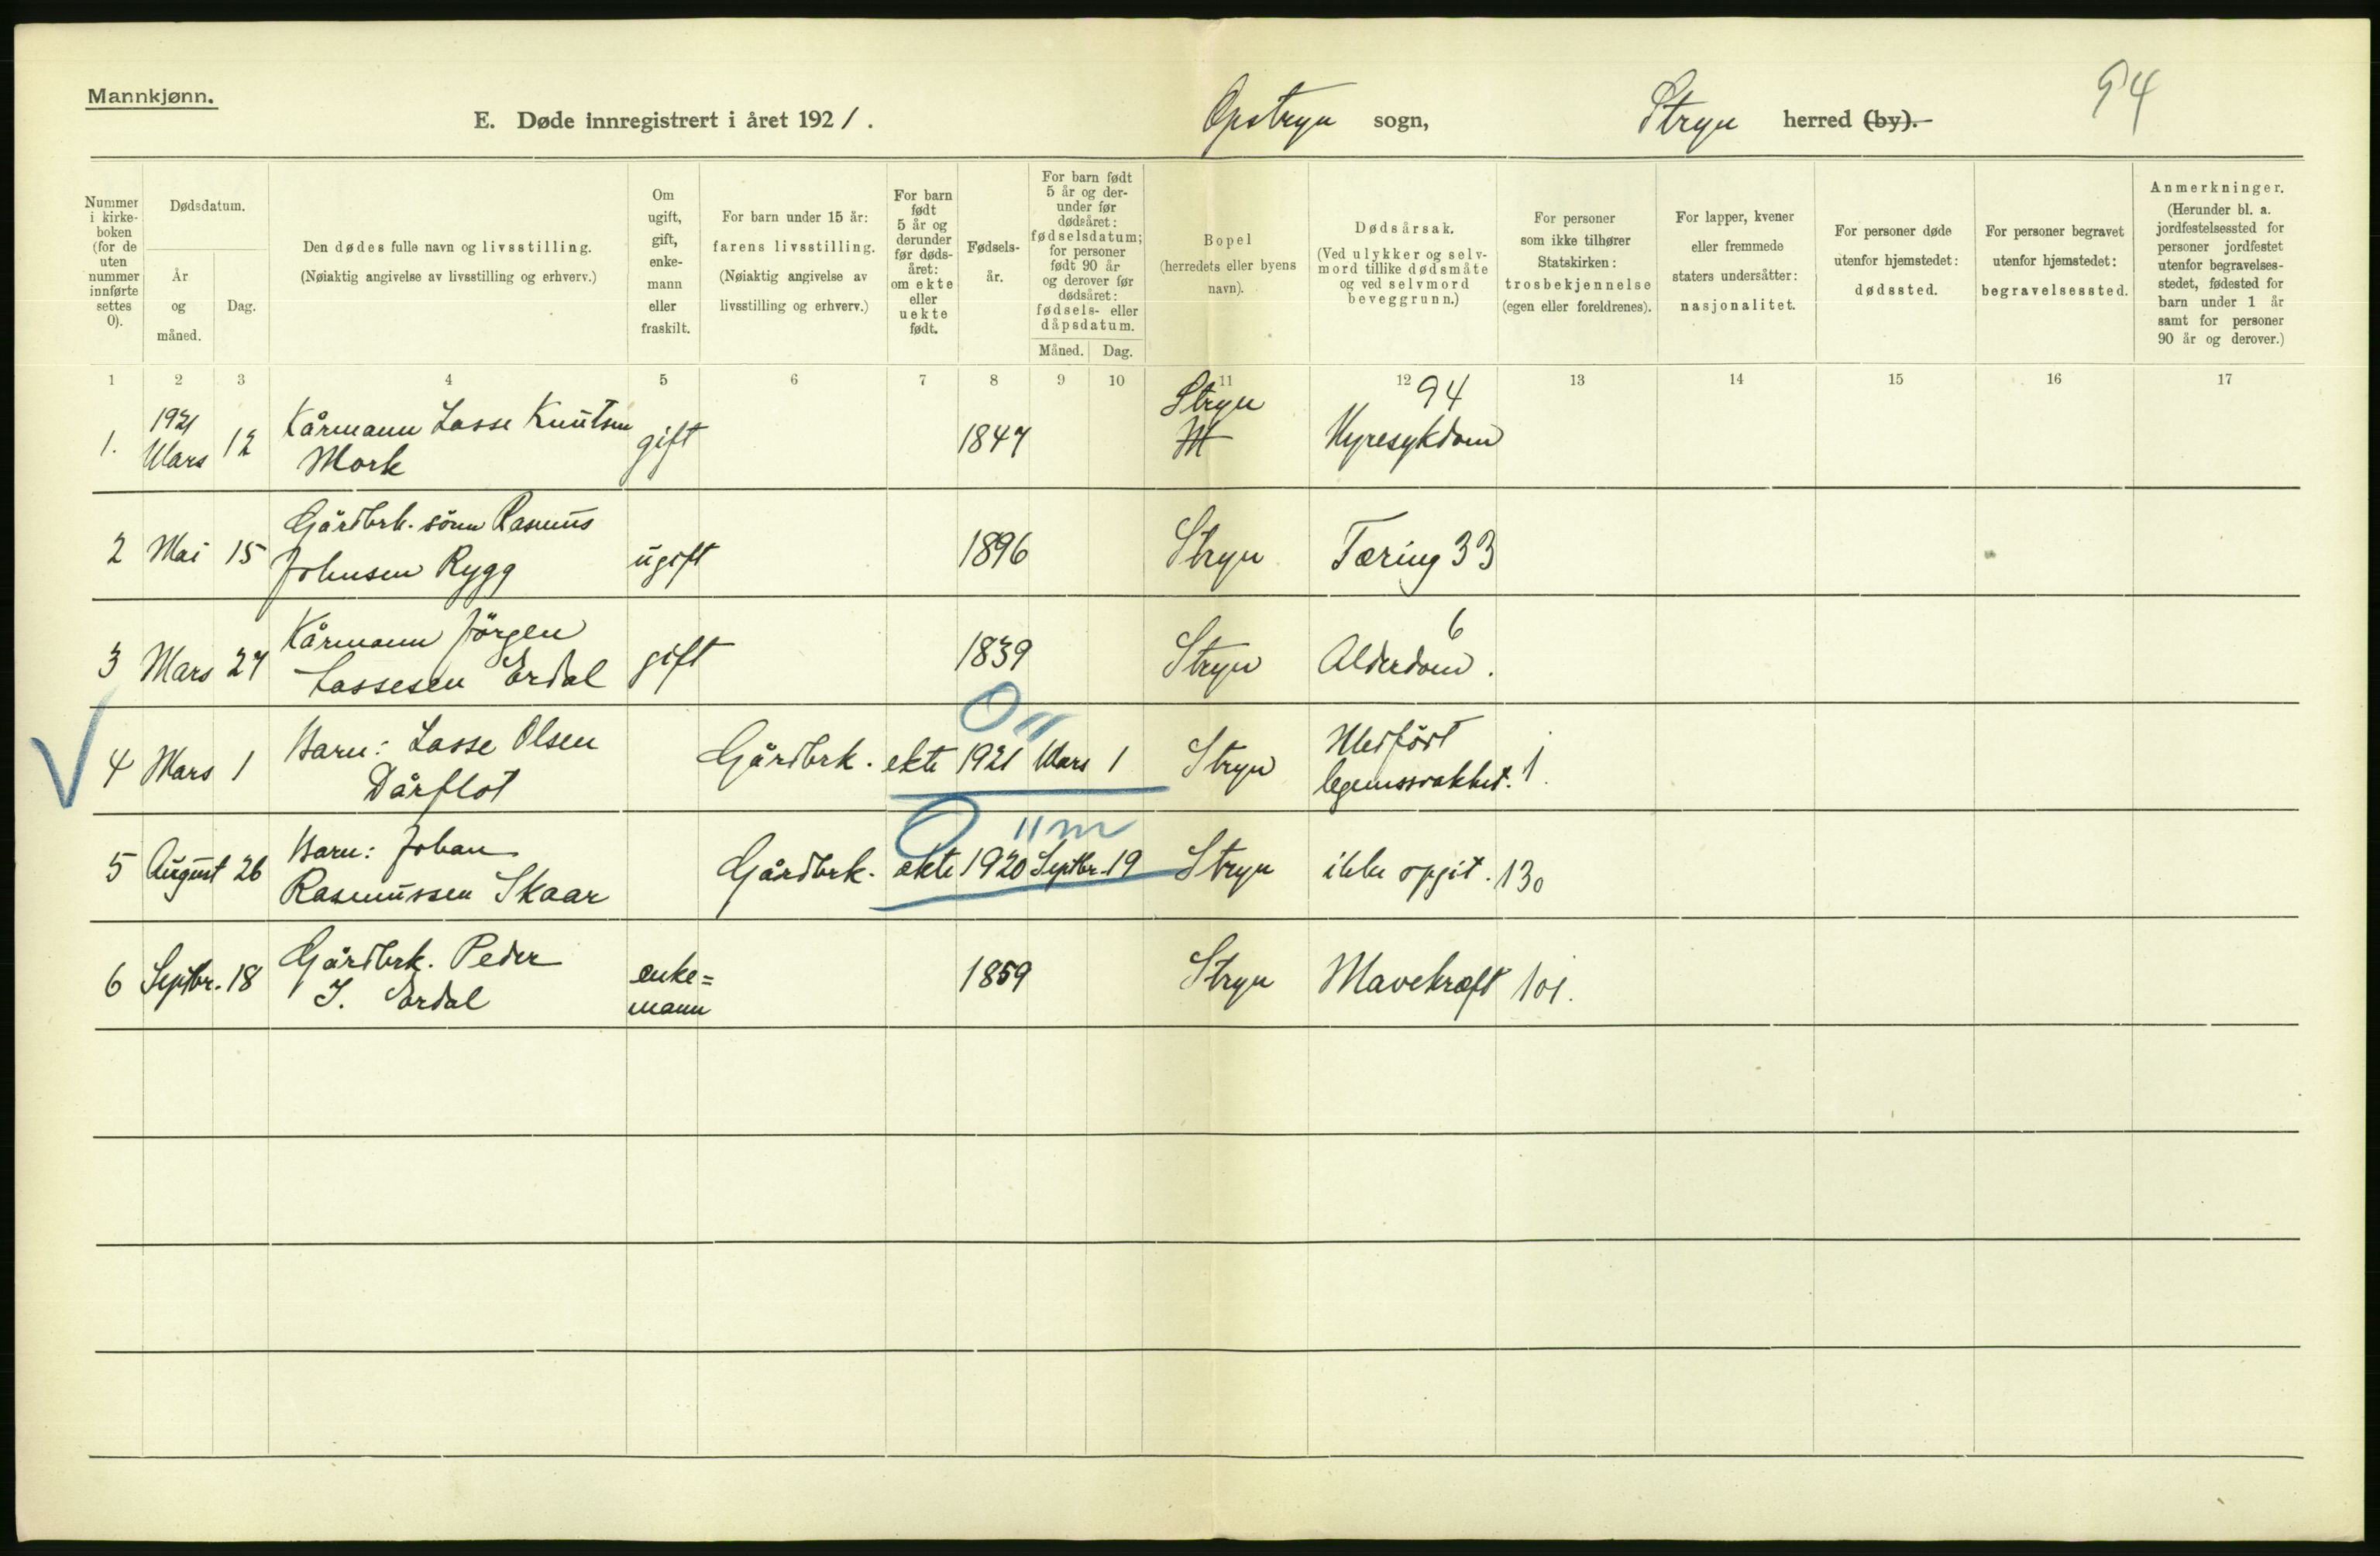 Mannkjønn.
E. Døde innregistrert i året 1921. Opstryn sogn, Stryn herred (by). 94
Nummer i kirkeboken (for de uten nummer innførte settes 0).
Dødsdatum.
År og måned.
Dag.
Den dødes fulle navn og livsstilling.
(Nøiaktig angivelse av livsstilling og erhverv.)
Om ugift, gift, enkemann eller fraskilt.
For barn under 15 år: farens livsstilling.
(Nøiaktig angivelse av livsstilling og erhverv.)
For barn født 5 år og derunder før dødsåret: om ekte eller uekte født.
Fødselsår.
For barn født 5 år og derunder før dødsåret: fødselsdatum; for personer født 90 år og derover før dødsåret: fødsels- eller dåpsdatum.
Måned. Dag.
Bopel
(herredets eller byens navn).
Dødsårsak.
(Ved ulykker og selvmord tillike dødsmåte og ved selvmord beveggrunn.)
For personer som ikke tilhører Statskirken: trosbekjennelse
(egen eller foreldrenes).
For lapper, kvener eller fremmede staters undersåtter: nasjonalitet.
For personer døde utenfor hjemstedet: dødssted.
For personer begravet utenfor hjemstedet: begravelsessted.
Anmerkninger.
(Herunder bl. a. jordfestelsessted for personer jordfestet utenfor begravelsesstedet, fødested for barn under 1 år samt for personer 90 år og derover.)
1 2 3 4 5 6 7 8 9 10 11 12 13 14 15 16 17
1. 1921 Mars 12 Kårmann Lasse Knutsen Mork gift 1847 Stryn Nyresykdom 94
2 Mai 15 Gårdbrk. sönn Rasmus Johnsen Rygg ugift 1896 Stryn Tæring 33
3 Mars 27 Kårmann Jörgen Lassesen Erdal gift 1839 Stryn Alderdom. 6
4 Mars 1 Barn: Lasse Olsen Dårflot Gårdbrk. ekte 1921 Mars 1 Stryn Medfödt legemssvakhet. 1.
5 August 26 Barn: Johan Rasmussen Skaar Gårdbrk. ekte 1920 Septbr. 19 Stryn ikke opgit. 130
6 Septbr. 18 Gårdbrk. Peder J. Erdal enke=mann 1859 Stryn Mavekræft 101.